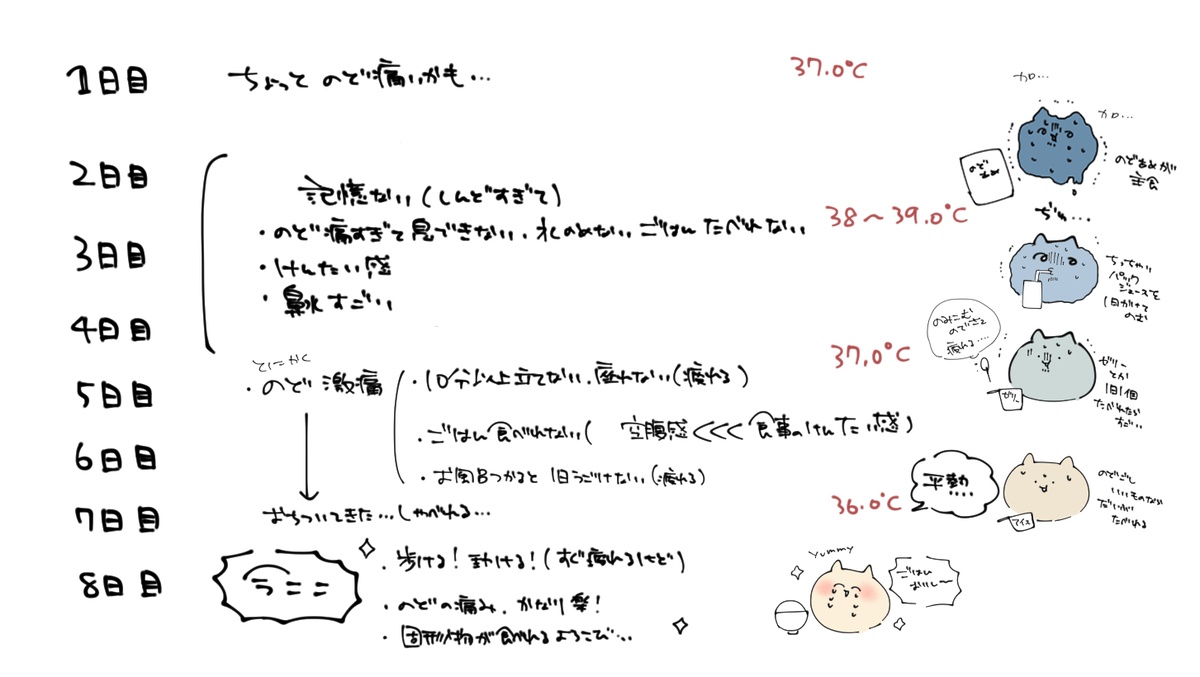 1日目
ちょっと のど痛いかも…
37.0℃
2日目
3日目
4日目
記憶ない(しんどすぎて)
・のど痛すぎて息できない、水のめない、ごはんたべれない
・けんたい感
・鼻水すごい
38〜39.0℃
5日目
6日目
7日目
とにかく
・のど激痛
・10分以上立てない、座れない(疲れる)
・ごはん食べれない(空腹感<<<食事のけんたい感)
・お風呂つかると1日うごけない(疲れる)
37.0℃
おちついてきた…しゃべれる…
36.0℃
8日目
・歩ける!動ける!(すぐ疲れるけど)
・のどの痛み、かなり楽!
・固形物が食べれるよろこび…
カロ…
カロ…
のど
あめ
のどあめが
主食
ぢゅ…
ちっちゃい
パック
ジュースを
1日かけて
のむ
のみこむ
のでさえ
疲れる…
ゼリー
ゼリー
とか
1日1個
たべれたら
すごい
平熱…
アイス
のどごし
いいものなら
だいたい
たべれる
yummy
ごはん
おいし〜